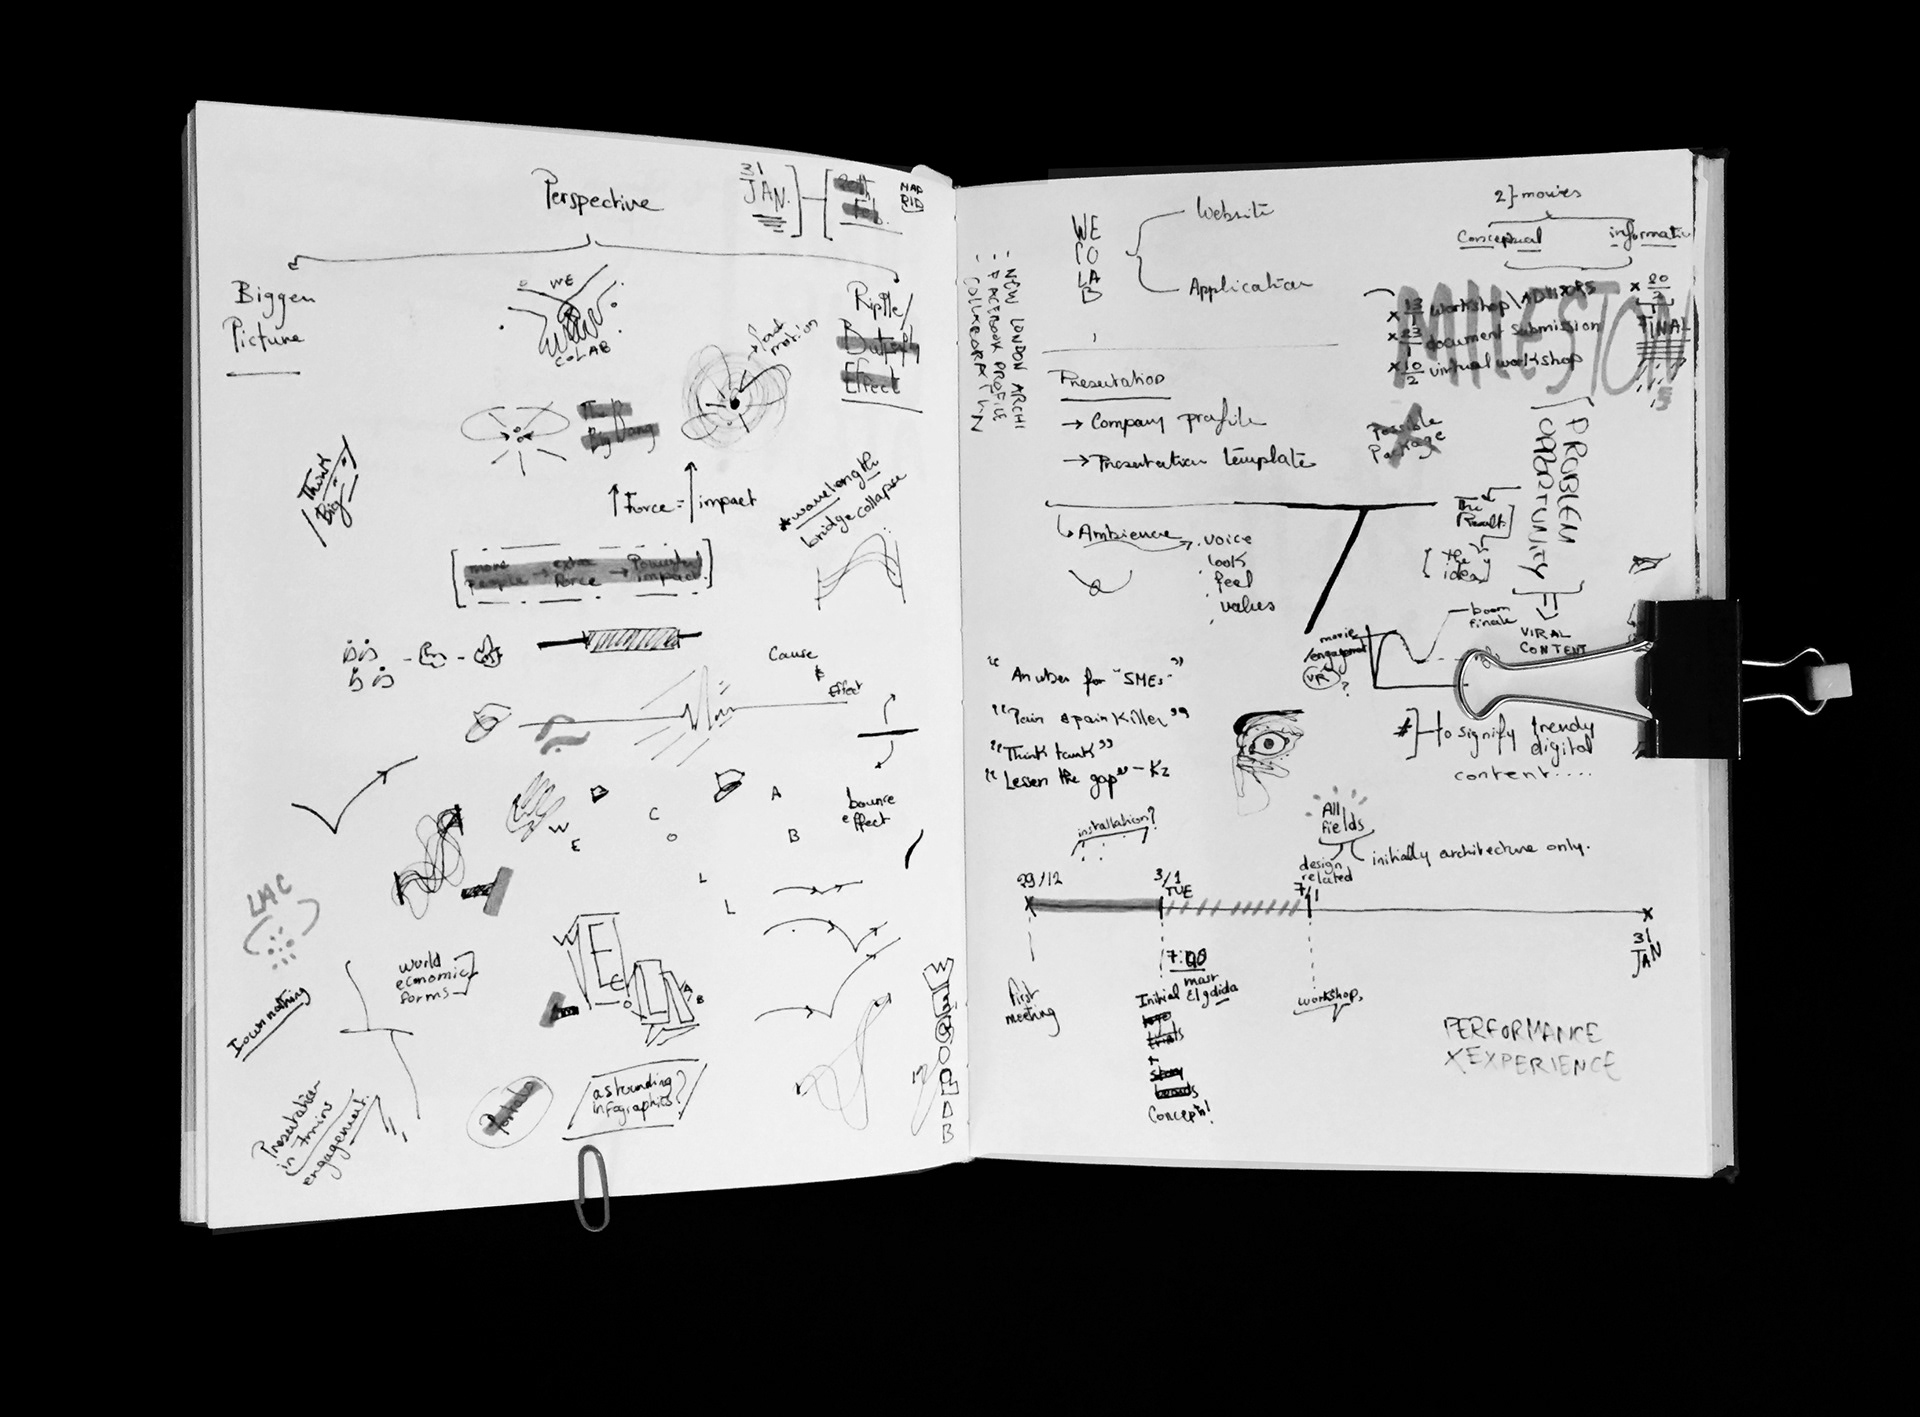 Perspective
31
JAN.
MAD
RID
Bigger
Picture
WE
COLAB
Ripple/
Butterfly
Effect
The
Big Bang
Think
Big
Force = impact
*wavelength
bridge collapse
more extra Powerful
People → Force → impact
Cause
&
Effect
bounce
effect
W
E
C
O
L
L
A
B
LAC
world
economic
forms
I own nothing
WE
COLLAB
Presentation
in 7mins
engagement
astounding?
infographics?
WE COLAB
WE
CO
LA
B
Website
Application
- NEW LONDON ARCHI
- FACEBOOK PROFILE
2} movies
Conceptual
x 13/1 workshop\ADVISORS
x 23/1 document submission
x 10/2 virtual workshop
FINAL
MILESTON
Presentation
→ Company profile
→ Presentation template
Possible
Package
PROBLEM
OPPORTUNITY
The
Result
the
idea
VIRAL
CONTENT
Ambience
voice
look
feel
values
boom
finale
movie
/engagement
VR
?
"An uber for "SMEs"
"Pain & pain killer"
"Think tank"
"Lessen the gap" - Kz
# to signify trendy
digital
content....
installation?
All
fields
design
related
initially architecture only.
29/12
3/1
TUE
7/1
31
JAN
7:00
first
meeting
Initial
logo
trials
+
story
boards
Concepts!
workshop
PERFORMANCE
XEXPERIENCE